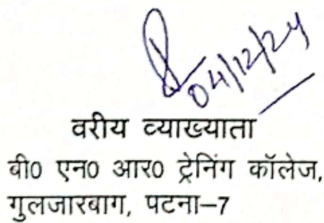 04/12/24
वरीय व्याख्याता
बी0 एन0 आर0 ट्रेनिंग कॉलेज,
गुलजारबाग, पटना–7